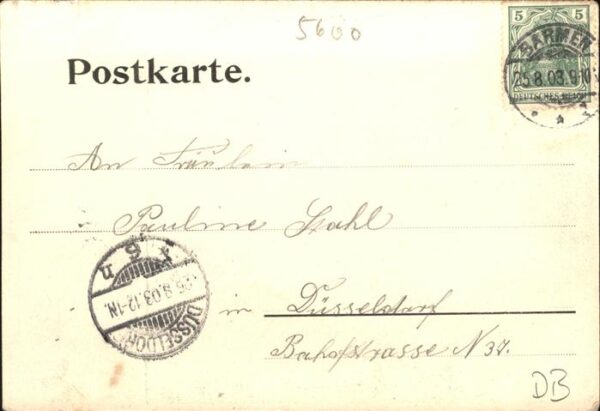 5600
5 5
DEUTSCHES REICH
BARMEN
25.8.03.9-10
Postkarte.
An Fräulein
Pauline Stahl
in Düsseldorf
Bahofstrasse N 37.
DÜSSELDORF
25.8.03.12-1N.
DB